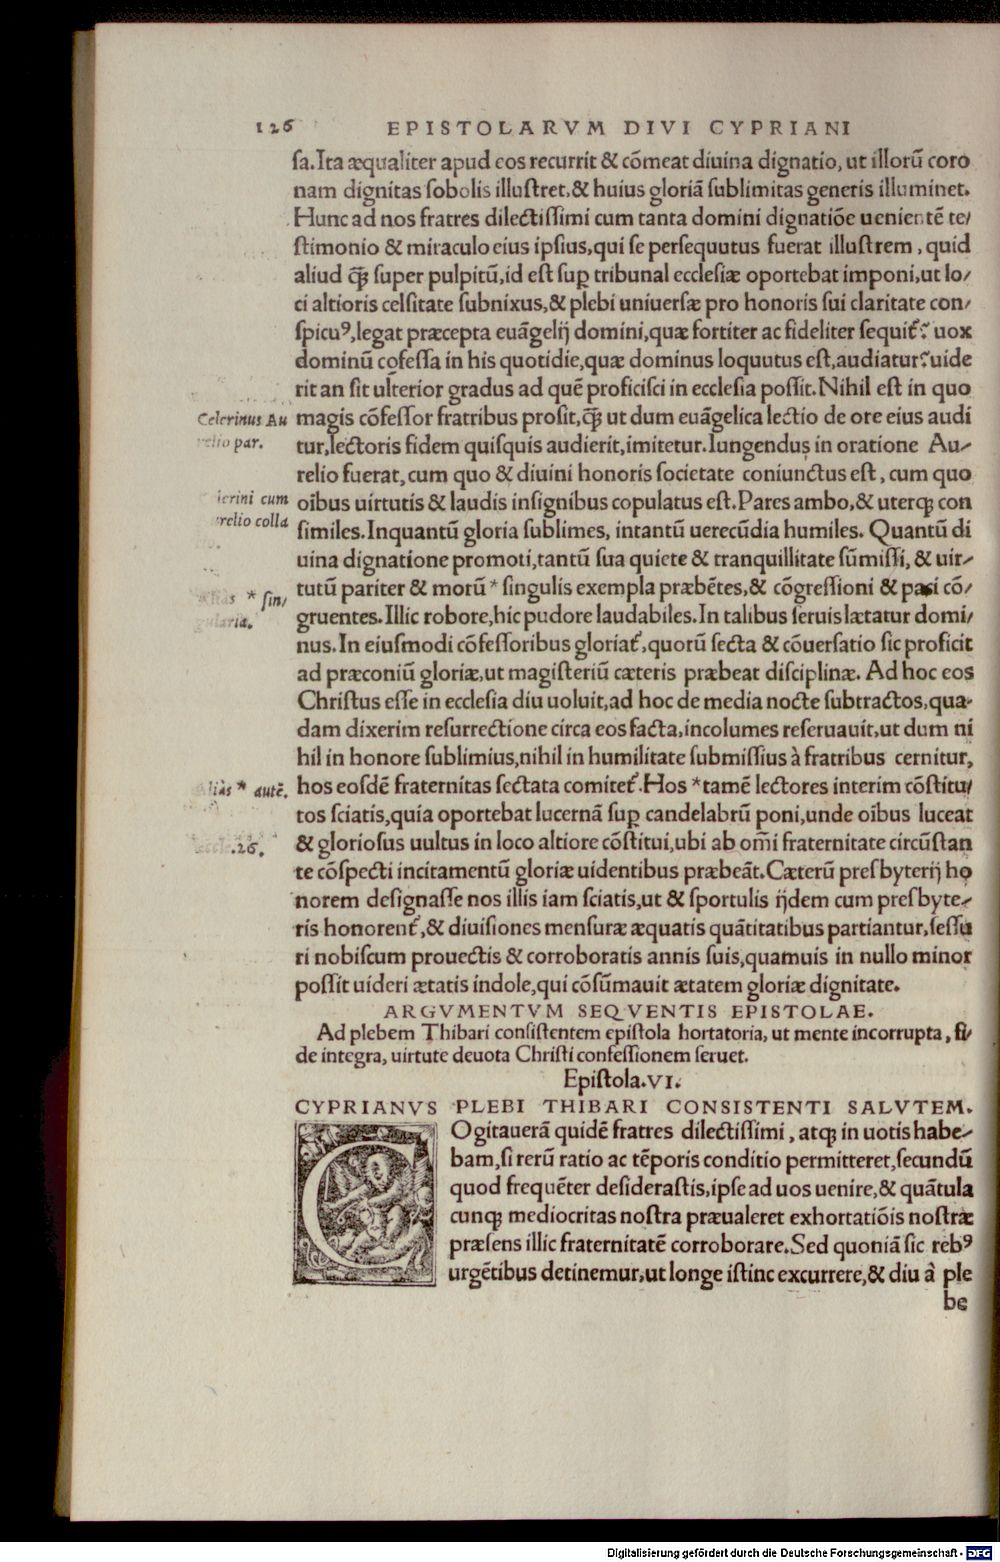 126 EPISTOLARVM DIVI CYPRIANI
ſa.Ita æqualiter apud eos recurrit & cõmeat diuina dignatio, ut illorũ coro
nam dignitas ſobolis illuſtret,& huius gloriã ſublimitas generis illuminet.
Hunc ad nos fratres dilectiſſimi cum tanta domini dignatiõe uenientẽ te/
ſtimonio & miraculo eius ipſius,qui ſe perſequutus fuerat illuſtrem, quid
aliud ꝙ̃ ſuper pulpitũ,id eſt ſuꝑ tribunal eccleſiæ oportebat imponi,ut lo/
ci altioris celſitate ſubnixus,& plebi uniuerſæ pro honoris ſui claritate con/
ſpicuꝰ,legat præcepta euãgelij domini,quæ fortiter ac fideliter ſequit᷑? uox
dominũ cõfeſſa in his quotidie,quæ dominus loquutus eſt,audiatur?uide
rit an ſit ulterior gradus ad quẽ proficiſci in eccleſia poſſit.Nihil eſt in quo
Celerinus Au
relio par.
magis cõfeſſor fratribus proſit,ꝙ̃ ut dum euãgelica lectio de ore eius audi
tur,lectoris fidem quiſquis audierit,imitetur.Iungendus in oratione Au/
relio fuerat,cum quo & diuini honoris ſocietate coniunctus eſt, cum quo
lerini cum
relio colla
oĩbus uirtutis & laudis inſignibus copulatus eſt.Pares ambo,& uterqꝫ con
ſimiles.Inquantũ gloria ſublimes, intantũ uerecũdia humiles. Quantũ di
uina dignatione promoti,tantũ ſua quiete & tranquillitate ſũmiſſi, & uir/
* ſin/
gularia.
tutũ pariter & morũ * ſingulis exempla præbẽtes,& cõgreſſioni & paci cõ/
gruentes.Illic robore,hic pudore laudabiles.In talibus ſeruis lætatur domi/
nus.In eiuſmodi cõfeſſoribus gloriat᷑,quorũ ſecta & cõuerſatio ſic proficit
ad præconiũ gloriæ,ut magiſteriũ cæteris præbeat diſciplinæ. Ad hoc eos
Chriſtus eſſe in eccleſia diu uoluit,ad hoc de media nocte ſubtractos,qua-
dam dixerim reſurrectione circa eos facta,incolumes reſeruauit,ut dum ni
hil in honore ſublimius,nihil in humilitate ſubmiſſius à fratribus cernitur,
liàs * autẽ.
hos eoſdẽ fraternitas ſectata comitet᷑.Hos * tamẽ lectores interim cõſtitu/
tos ſciatis,quia oportebat lucernã ſuꝑ candelabrũ poni,unde oĩbus luceat
.26.
& glorioſus uultus in loco altiore cõſtitui,ubi ab om̃i fraternitate circũſtan
te cõſpecti incitamentũ gloriæ uidentibus præbeãt.Cæterũ preſbyterij ho
norem deſignaſſe nos illis iam ſciatis,ut & ſportulis ijdem cum preſbyte/
ris honorent᷑,& diuiſiones menſuræ æquatis quãtitatibus partiantur,ſeſſu
ri nobiſcum prouectis & corroboratis annis ſuis,quamuis in nullo minor
poſſit uideri ætatis indole,qui cõſũmauit ætatem gloriæ dignitate.
ARGVMENTVM SEQVENTIS EPISTOLAE.
Ad plebem Thibari conſiſtentem epiſtola hortatoria, ut mente incorrupta, fi/
de integra, uirtute deuota Chriſti confeſſionem ſeruet.
Epiſtola.VI.
CYPRIANVS PLEBI THIBARI CONSISTENTI SALVTEM.
COgitauerã quidẽ fratres dilectiſſimi, atqꝫ in uotis habe/
bam,ſi rerũ ratio ac tẽporis conditio permitteret,ſecundũ
quod frequẽter deſideraſtis,ipſe ad uos uenire,& quãtula
cunqꝫ mediocritas noſtra præualeret exhortatiõis noſtræ
præſens illic fraternitatẽ corroborare.Sed quoniã ſic rebꝰ
urgẽtibus detinemur,ut longe iſtinc excurrere,& diu à ple
be
Digitalisierung gefördert durch die Deutsche Forschungsgemeinschaft - DFG